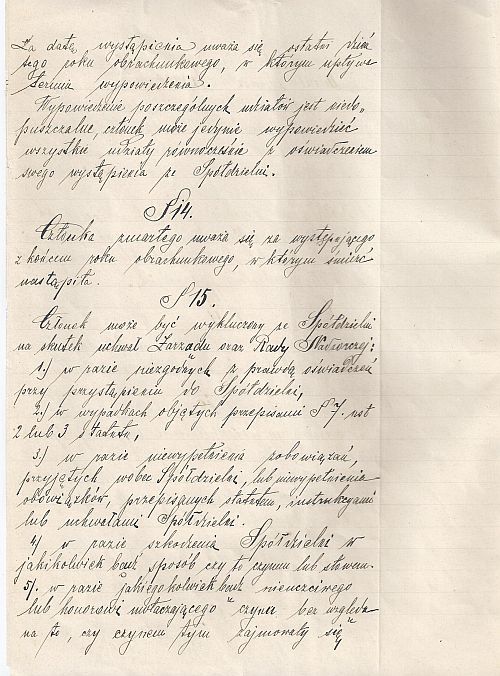 Za datę wystąpienia uważa się ostatni dzień
tego roku obrachunkowego, w którym upływa
termin wypowiedzenia.
Wypowiedzenie poszczególnych udziałów jest niedo„
puszczalne, członek może jedynie wypowiedzieć
wszystkie udziały równocześnie z oświadczeniem
swego wystąpienia ze Spółdzielni.
§ 14.
Członka zmarłego uważa się za występującego
z końcem roku obrachunkowego, w którym śmierć
nastąpiła.
§ 15.
Członek może być wykluczony ze Spółdzielni
na skutek uchwał Zarządu oraz Rady Nadzorczej:
1.) w razie niezgodnych z prawdą oświadczeń
przy przystąpieniu do Spółdzielni,
2.) w wypadkach objętych przepisami § 7. ust
2 lub 3 statutu,
3.) w razie niewypełnienia zobowiązań,
przyjętych wobec Spółdzielni, lub niewypełnienia
obowiązków, przepisanych statutem, instrukcjami
lub uchwałami Spółdzielni.
4) w razie szkodzenia Spółdzielni w
jakikolwiek bądź sposób czy to czynem lub słowem.
5). w razie jakiegokolwiek bądź nieuczciwego
lub honorowi uwłaczającego czynu bez względu
na to, czy czynem tym zajmowały się